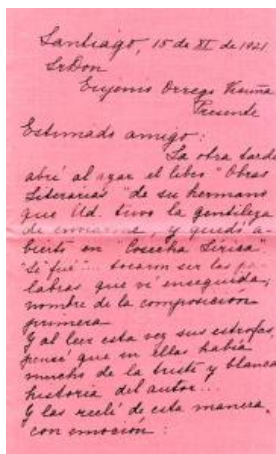 Santiago, 15 de XI de 1921
Sr Don
Eujenio Orrego Vicuña
Presente
Estimado amigo:
La otra tarde
abrí al azar el libro "Obras
Literarias" de su hermano
que Ud. tuvo la gentileza
de enviarme, y quedó a-
bierto en "Cosecha Lírica"
"Se fué"... tocaron ser las pa-
labras que ví enseguida,
nombre de la composición
primera
Y al leer esta vez sus estrofas,
pensé que en ellas había
mucho de la triste y blanca
historia del autor...
Y las recé de esta manera,
con emoción: